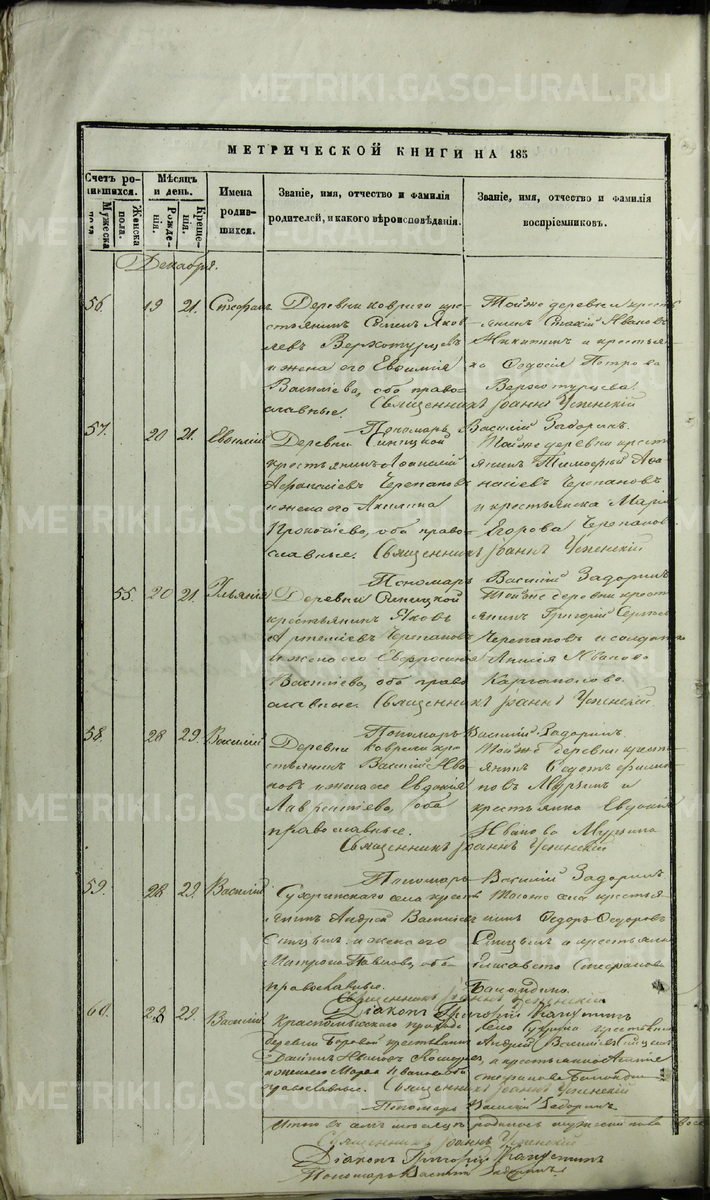 METRIKI.GASO-URAL.RU
МЕТРИЧЕСКОЙ КНИГИ НА 185
Счетъ ро-
дившихся.
Мужеска
пола.
Женска
пола.
Мѣсяцъ
и день.
Рожде-
нія.
Креще-
нія.
Имена
родив-
шихся.
Званіе, имя, отчество и фамилія
родителей, и какого вѣроисповѣданія.
Званіе, имя, отчество и фамилія
воспріемниковъ.
Декабря.
56. 19 21. Стефанъ
Деревни Коврига кре-
стьянинъ Яков
левъ Верхотурцевъ
и жена его Евѳимія
Василіева, оба право-
славные.
Тойже деревни кресть
янинъ Ивановъ
Никитинъ и крестья
ка Ѳедосія Петрова
Верхотурцева.
Священникъ Іоаннъ Успенскій
Пономарь Василій Задоринъ.
57. 20 21. Евѳимій
Деревни Синицкой
крестьянинъ Аѳанасій
Черепановъ
и жена его Акилина
Прокопіева, оба право-
славные.
Тойже деревни крест
янинъ Тимофей Аѳа
насіевъ Черепановъ
и крестьянка Марія
Егорова Черепанов
Священникъ Іоаннъ Успенскій
Пономарь Василій Задоринъ
55. 20 21 Ульянія
Деревни Синицкой
крестьянинъ Яковъ
Артеміевъ Черепановъ
и жена его Евфросинія
Василіева, оба право
славные.
Тойже деревни крест
янинъ Григорій Сергѣев
Черепановъ и солдатк
Иванова
Каргаполова.
Священникъ Іоаннъ Успенскій
Пономарь Василій Задоринъ
58. 28 29. Василій
Деревни Коврига кре
стьянинъ Василій Ива
новъ и жена его Евдокія
Лаврентіева, оба
православные.
Тойже деревни кресть
янинъ Ѳедотъ Филип
повъ Мурзинъ и
крестьянка Евдокія
Иванова Мурзина
Священникъ Іоаннъ Успенскій
Пономарь Василій Задоринъ
59. 28 29. Василій
Сухринскаго села кресть
янинъ Андрей Василіев
и жена его
Матрона Павлова, оба
православные.
Тогоже села крестья
нинъ Ѳедоръ Ѳедоровъ
и крестьянка
Елисавета Стефанова
Баландина.
Священникъ Іоаннъ Успенскій
Діаконъ Григорій Капустинъ
60. 28 29. Василій
прихода
деревни Боровой крестьянинъ
и жена его оба
православные.
Села Сухрина крестьянинъ
Андрей Василіевъ
и крестьянка
Стефанова
Священникъ Іоаннъ Успенскій
Пономарь Василій Задоринъ
Итого въ семъ мѣсяцѣ родилось мужеска пола
Священникъ Іоаннъ Успенскій
Діаконъ Григорій Капустинъ
Пономарь Василій Задоринъ